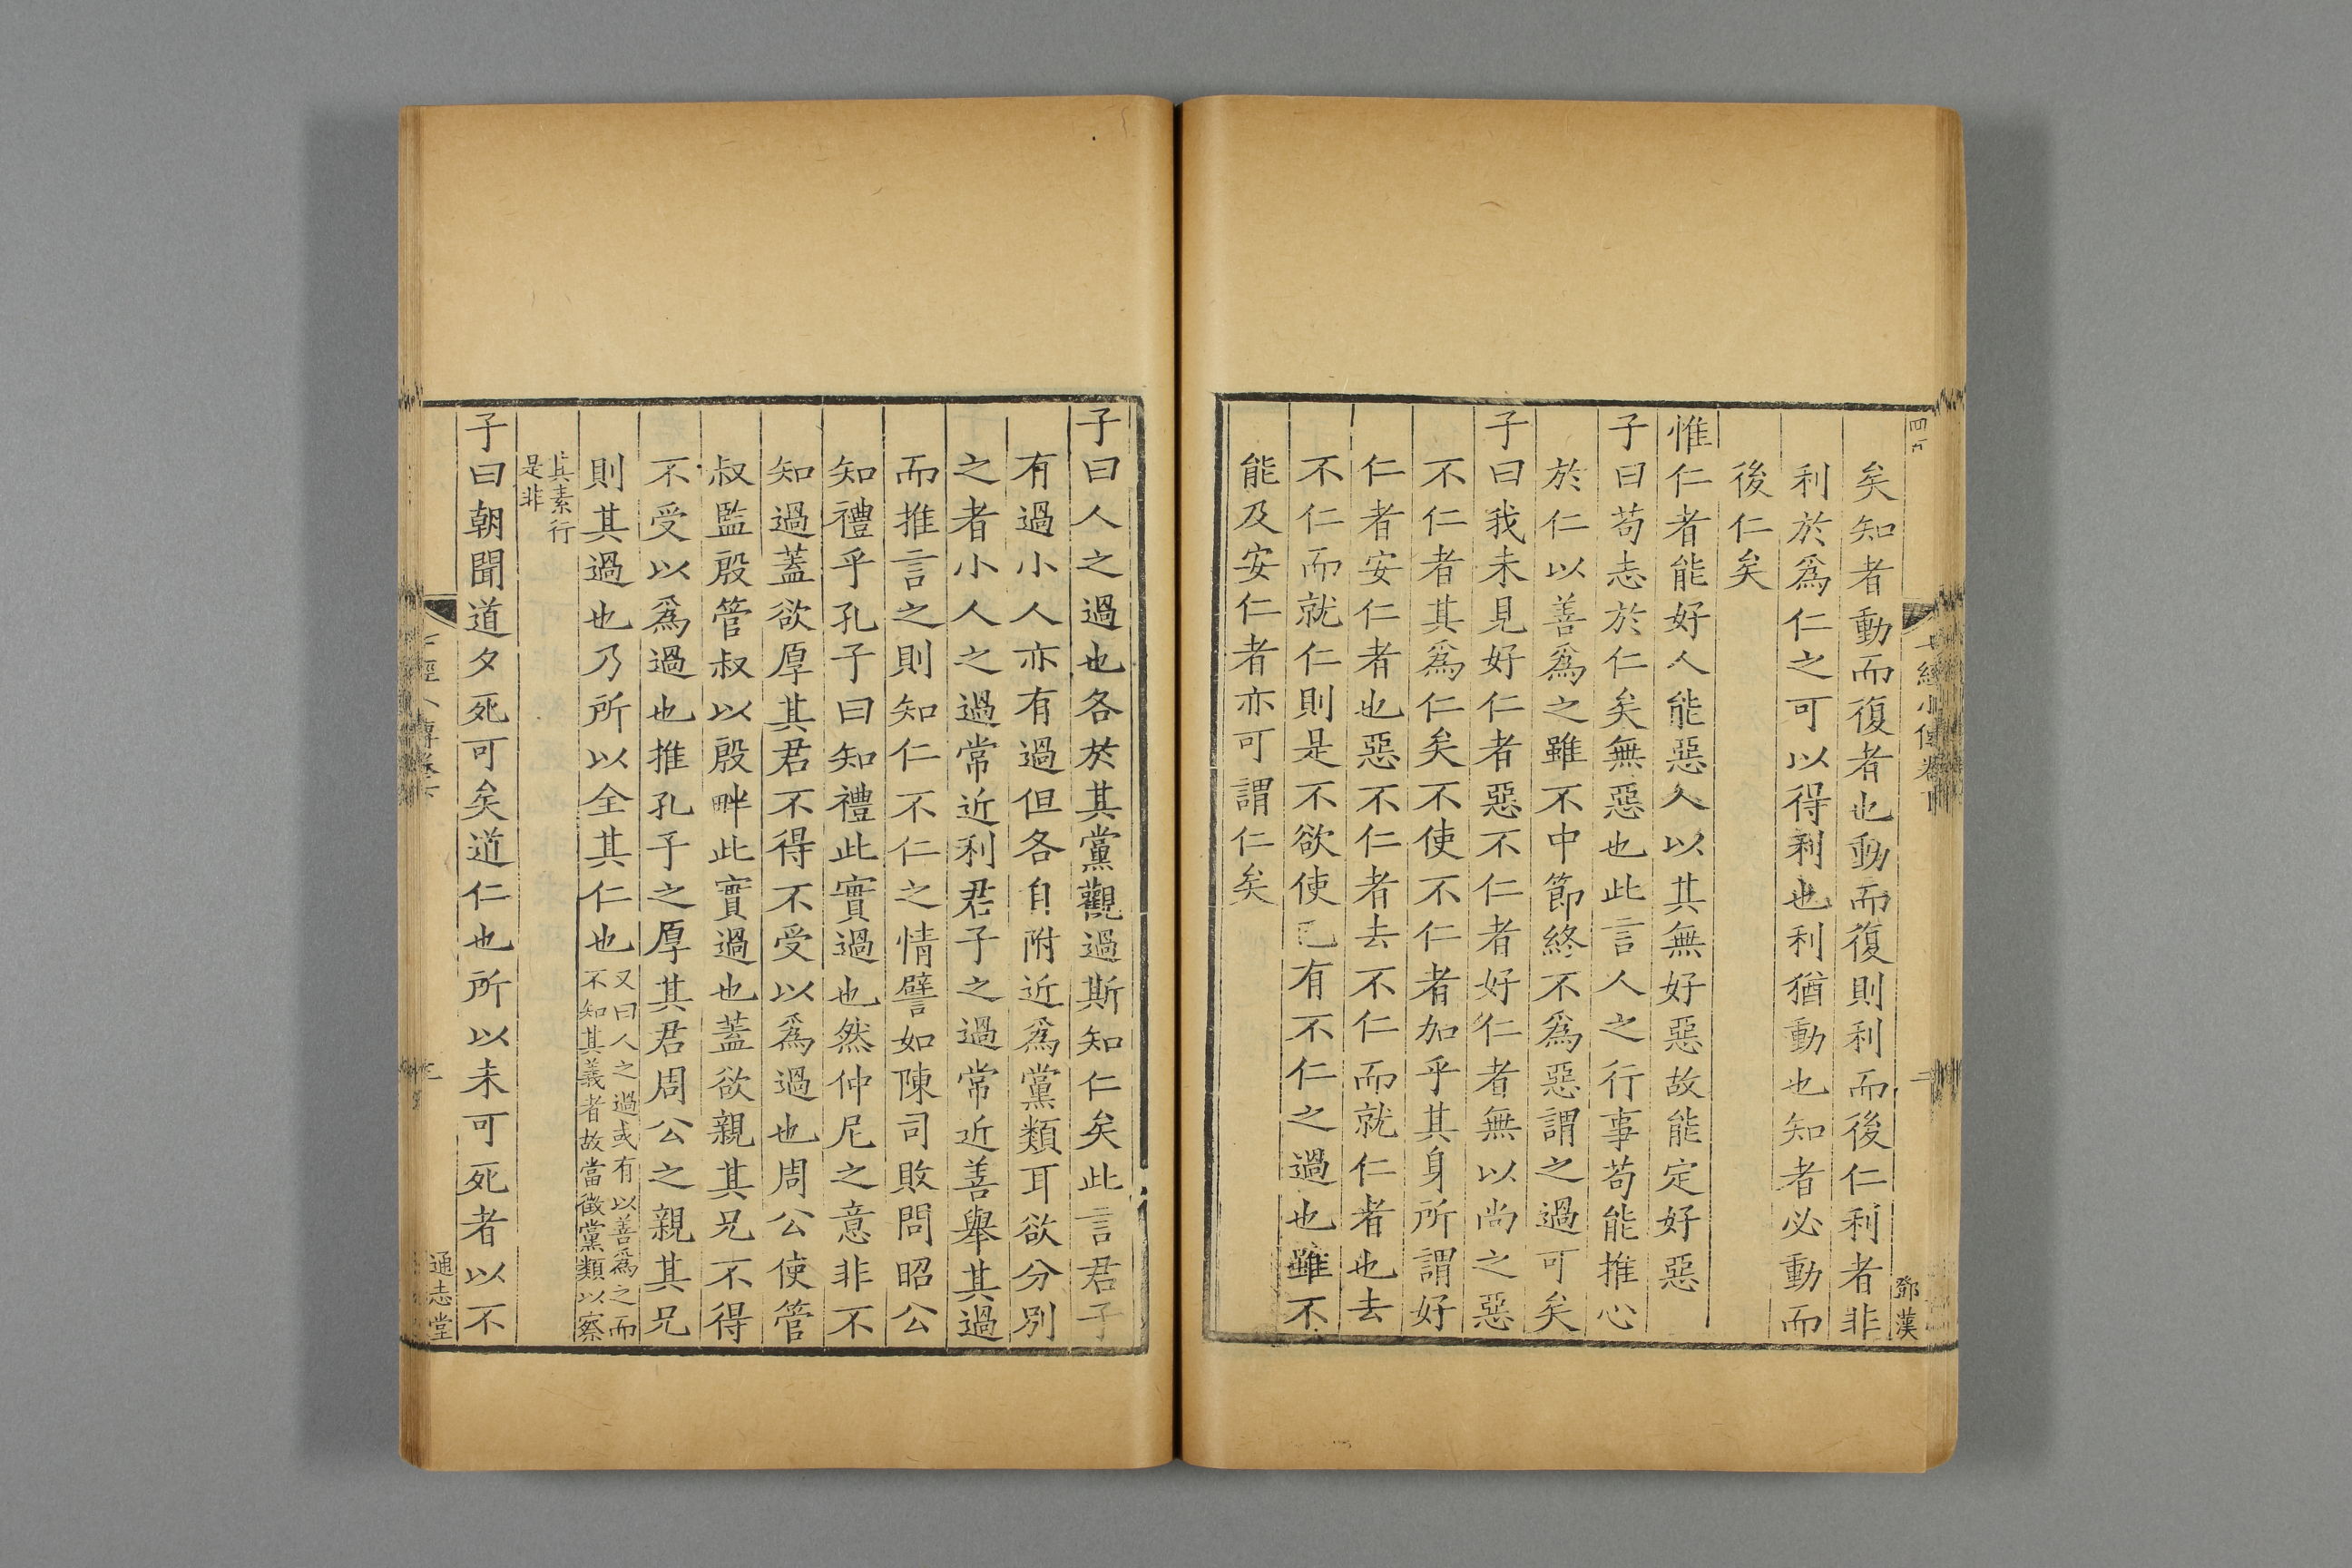 矣知者動而復者也動而復則利而後仁利者非
利於爲仁之可以得利也利猶動也知者必動而
後仁矣
惟仁者能好人能惡人以其無好惡故能定好惡
子曰苟志於仁矣無惡也此言人之行事苟能推心
於仁以善爲之雖不中節終不爲惡謂之過可矣
子曰我未見好仁者惡不仁者好仁者無以尚之惡
不仁者其爲仁矣不使不仁者加乎其身所謂好
仁者安仁者也惡不仁者去不仁而就仁者也去
不仁而就仁則是不欲使己有不仁之過也雖不
能及安仁者亦可謂仁矣
鄧漢
子曰人之過也各於其黨觀過斯知仁矣此言君子
有過小人亦有過但各自附近爲黨類耳欲分別
之者小人之過常近利君子之過常近善舉其過
而推言之則知仁不仁之情譬如陳司敗問昭公
知禮乎孔子曰知禮此實過也然仲尼之意非不
知過蓋欲厚其君不得不受以爲過也周公使管
叔監殷管叔以殷畔此實過也蓋欲親其兄不得
不受以爲過也推孔子之厚其君周公之親其兄
則其過也乃所以全其仁也
又曰人之過或有以善爲之而
不知其義者故當徵黨類以察
其素行
是非
子曰朝聞道夕死可矣道仁也所以未可死者以不
通志堂